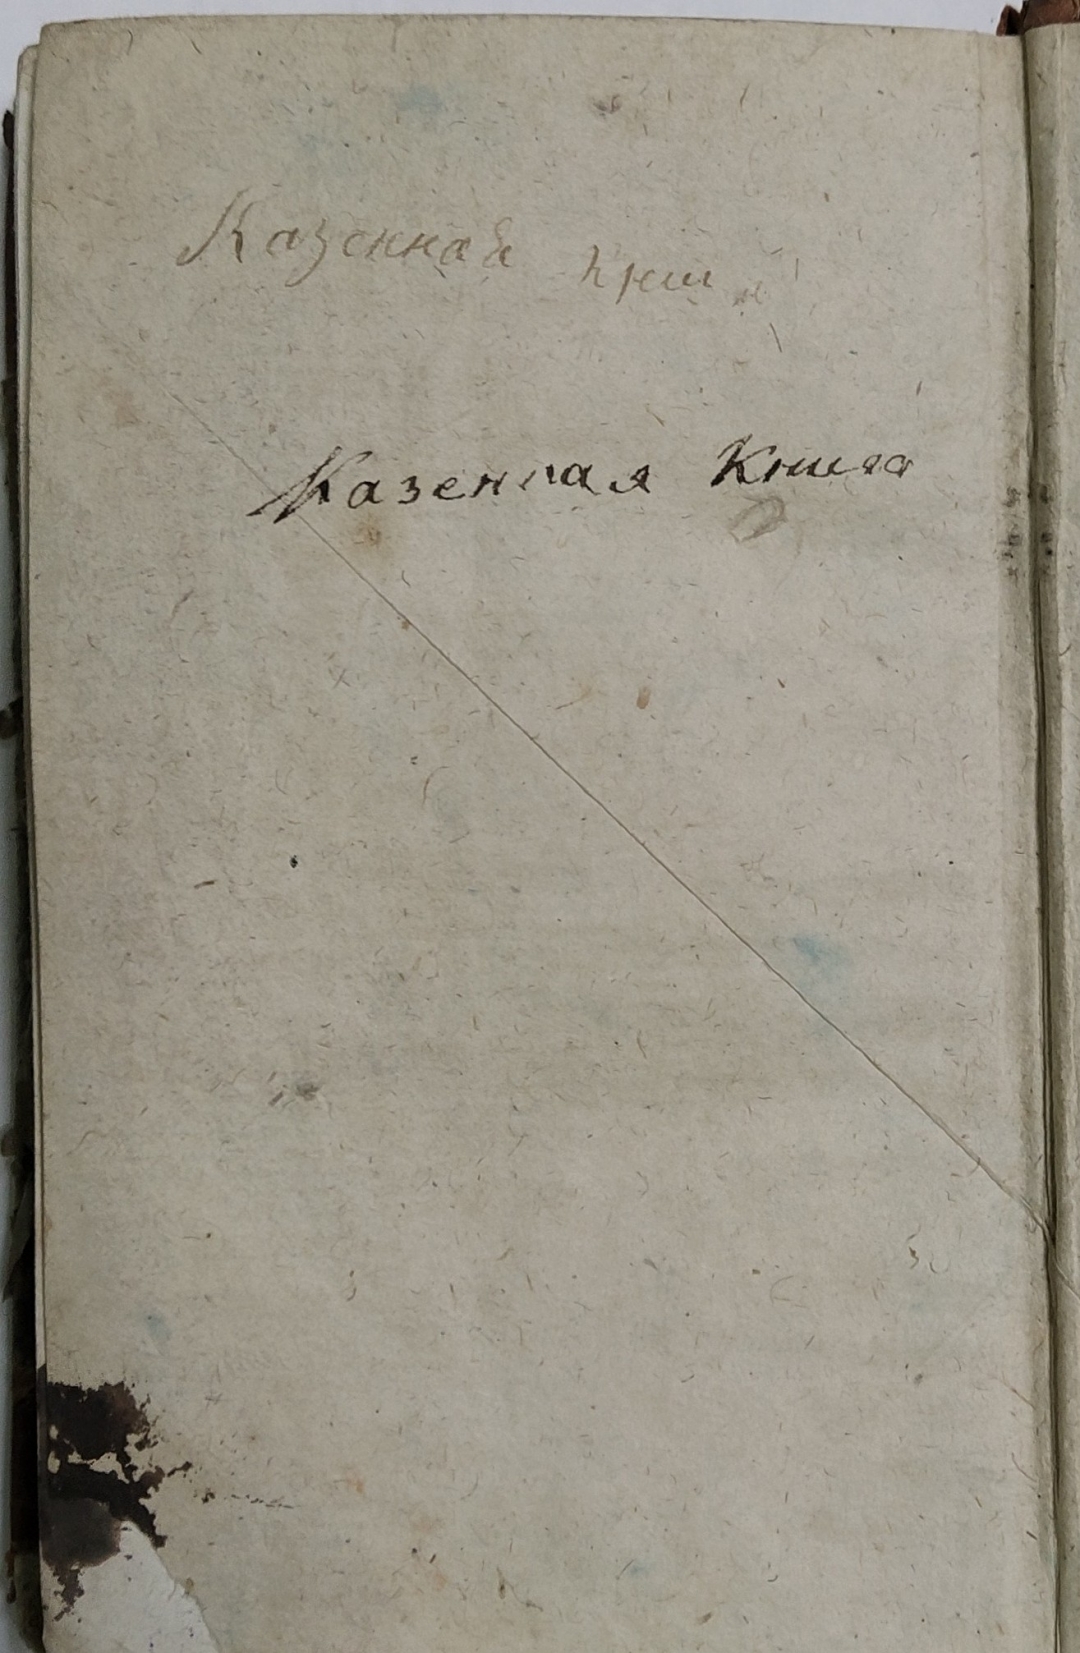 Казенная книг
Казенная Книга